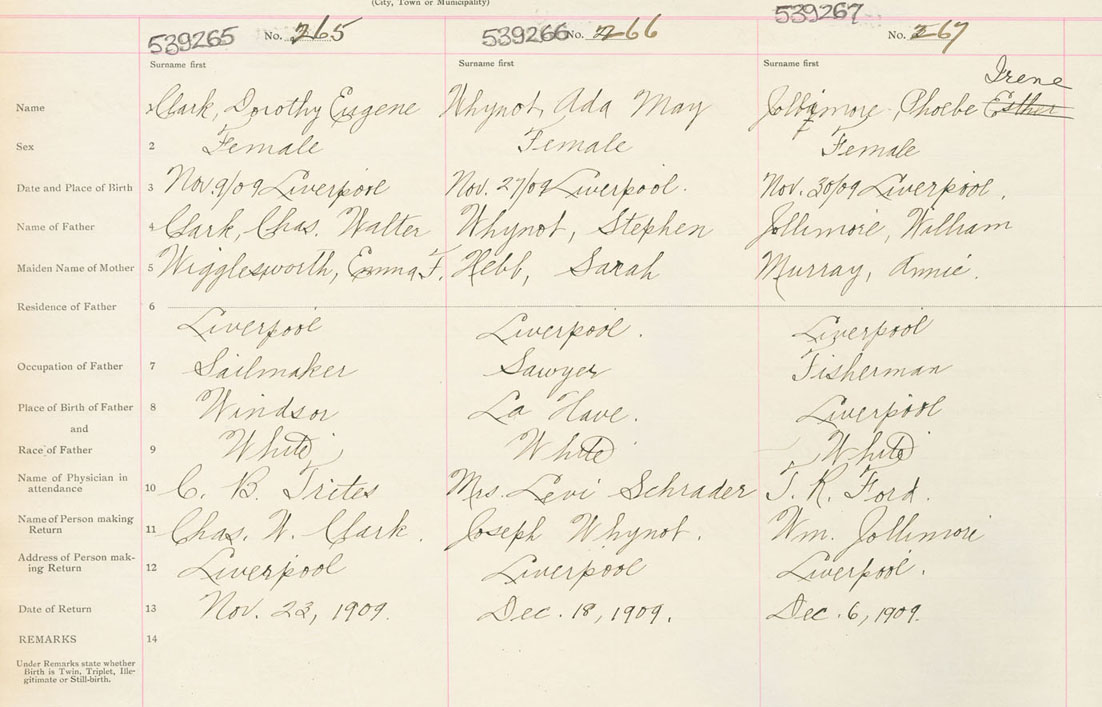 (City, Town or Municipality)
539265 No. 265 539266 No. 266 539267 No. 267
Surname first Surname first Surname first
Irene
Name 1 Clark, Dorothy Eugene Whynot, Ada May Jollimore, Phoebe Esther
Sex 2 Female Female Female
Date and Place of Birth 3 Nov. 9/09 Liverpool Nov. 27/09 Liverpool. Nov. 30/09 Liverpool.
Name of Father 4 Clark, Chas. Walter Whynot, Stephen Jollimore, William
Maiden Name of Mother 5 Wigglesworth, Emma F. Hebb, Sarah Murray, Annie.
Residence of Father 6
Liverpool Liverpool. Liverpool
Occupation of Father 7 Sailmaker Sawyer Fisherman
Place of Birth of Father 8 Windsor La Have. Liverpool
and
Race of Father 9 White White White
Name of Physician in
attendance 10 C. B. Trites Mrs. Levi Schrader T. R. Ford.
Name of Person making
Return 11 Chas. W. Clark. Joseph Whynot. Wm. Jollimore
Address of Person mak-
ing Return 12 Liverpool Liverpool Liverpool.
Date of Return 13 Nov. 23, 1909. Dec. 18, 1909. Dec. 6, 1909.
REMARKS 14
Under Remarks state whether
Birth is Twin, Triplet, Ille-
gitimate or Still-birth.